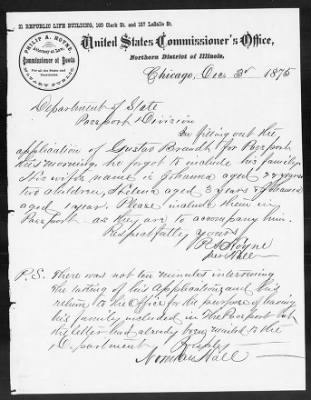 21 REPUBLIC LIFE BUILDING, 160 Clark St. and 157 LaSalle St.
PHILIP A. HOYNE,
Attorney at Law
Commissioner of Deeds
For all the States and
Territories
CHICAGO
United States Commissioner's Office,
Northern District of Illinois,
Chicago, Dec 3d 1875
Department of State
Passport Division
In filling out the
application of Gustav Brandt for Passport
this morning, he forgot to include his family.
His wife's name is Johanna aged 22 years
two children, Helena aged 3 years &
aged 1 year. Please include them in
Passport as they are to accompany him.
Respectfully yours
P A Hoyne
per Hall
P.S. There was not ten minutes intervening
the taking of his application and his
return to the office for the purpose of having
his family included in the Passport but
the letter had already been mailed to the
Department
Norman Hall